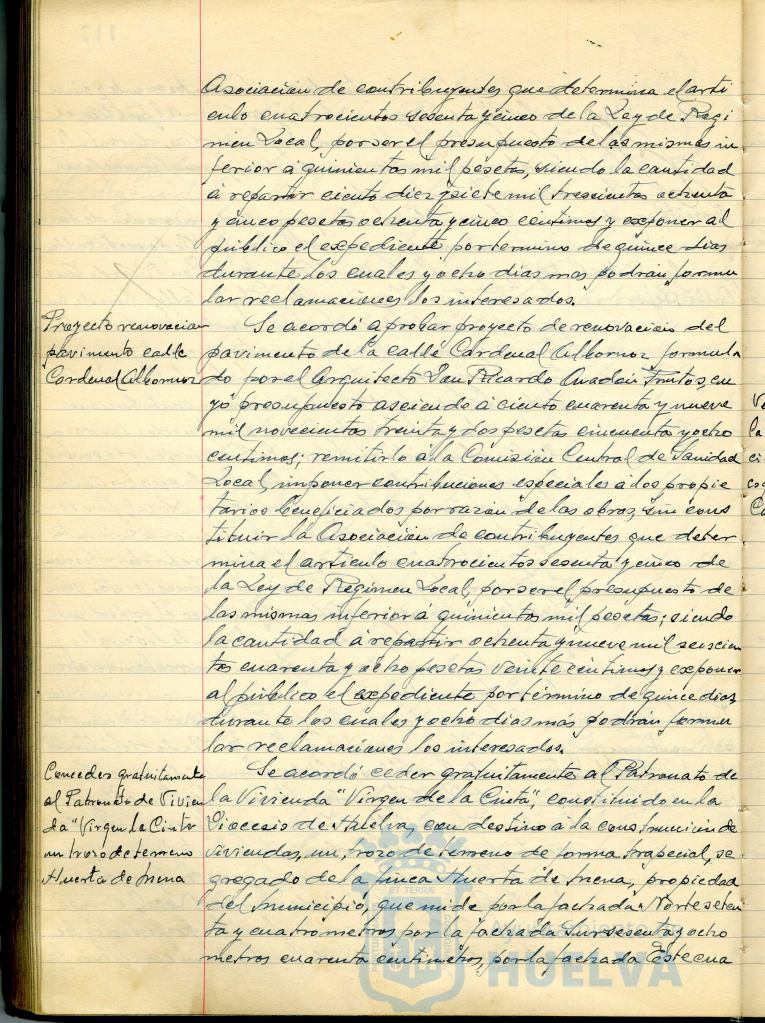 Asociación de contribuyentes que determina el arti
culo cuatrocientos sesenta y cinco de la Ley de Regi
men Local, por ser el presupuesto de las mismas in
ferior á quinientas mil pesetas, siendo la cantidad
á repartir ciento diez y siete mil trescientas ochenta
y cinco pesetas ochenta y cinco centimos y exponer al
público el expediente por termino de quince dias
durante los cuales y ocho dias mas podrán formu
lar reclamaciones los interesados.
Proyecto renovacion
pavimento calle
Cardenal Albornoz
Se acordó aprobar proyecto de renovación del
pavimento de la calle Cardenal Albornoz formula
do por el Arquitecto Don Ricardo Anadón Frutos, cu
yo presupuesto asciende á ciento cuarenta y nueve
mil novecientas treinta y dos pesetas cincuenta y ocho
centimos; remitirlo á la Comisión Central de Sanidad
Local, imponer contribuciones especiales a los propie
tarios beneficiados por razón de las obras, sin cons
tituir la Asociación de contribuyentes que deter
mina el articulo cuatrocientos sesenta y cinco de
la Ley de Régimen Local, por ser el presupuesto de
las mismas inferior á quinientas mil pesetas; siendo
la cantidad á repartir ochenta y nueve mil seiscien
tas cuarenta y ocho pesetas veinte centimos y exponer
al público el expediente por término de quince dias,
durante los cuales y ocho dias más podrán formu
lar reclamaciones los interesados.
Conceder gratuitamente
al Patronato de Vivien
da "Virgen la Cinta
un trozo de terreno
Huerta de Mena
Se acordó ceder gratuitamente al Patronato de
la Vivienda "Virgen de la Cinta", constituido en la
Diocesis de Huelva, con destino á la construcción de
viviendas, un trozo de terreno de forma trapecial, se
gregado de la finca Huerta de Mena, propiedad
del Municipio, que mide por la fachada Norte seten
ta y cuatro metros por la fachada Sur sesenta y ocho
metros cuarenta centimetros, por la fachada Este cua
HUELVA